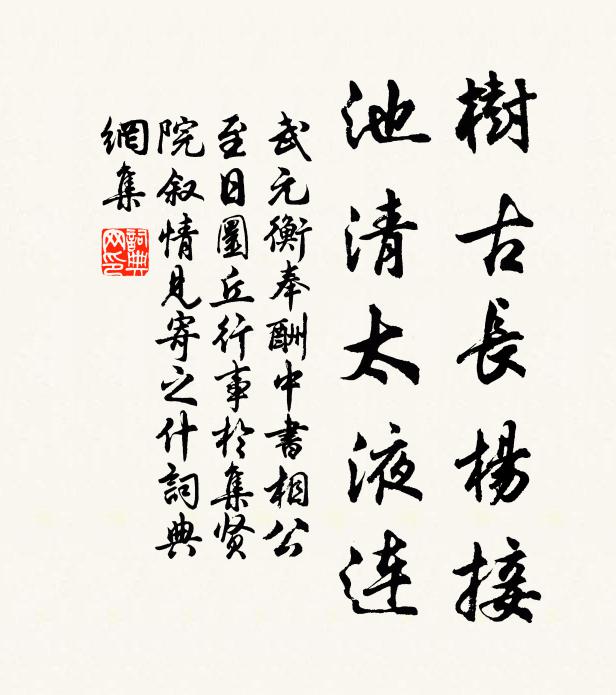 樹古長楊接
池清太液連
武元衡奉酬中書相公
至日圜丘行事於集贤
院叙情見寄之什詞典
網集
詞典网印